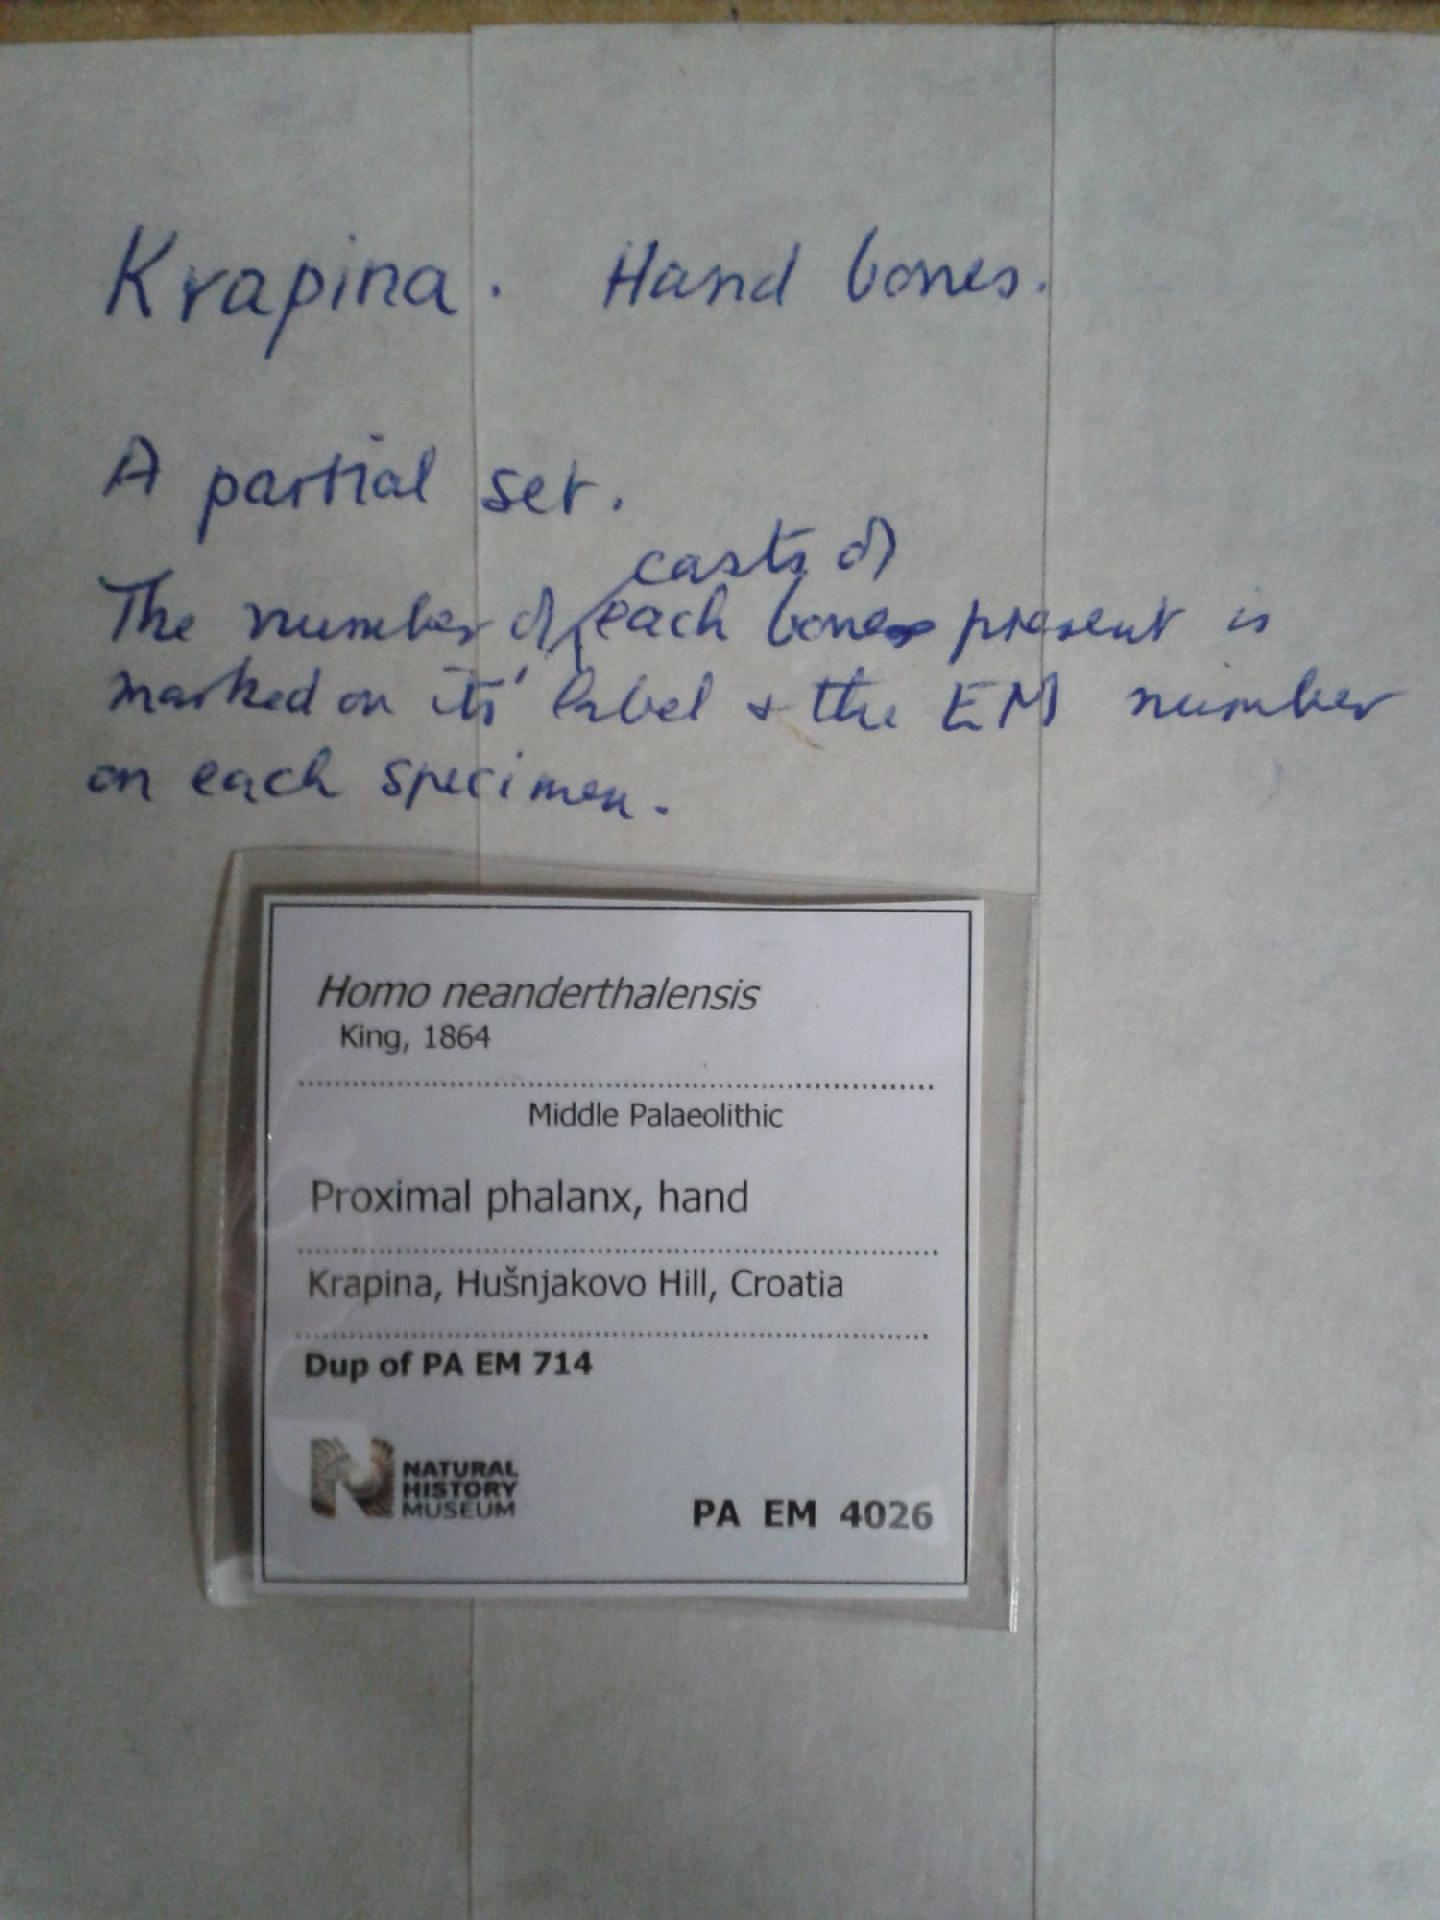 Krapina. Hand bones.
A partial set.
casts of
The number of each bone present is
marked on its' label & the EM number
on each specimen.
Homo neanderthalensis
King, 1864
Middle Palaeolithic
Proximal phalanx, hand
Krapina, Hušnjakovo Hill, Croatia
Dup of PA EM 714
NATURAL
HISTORY
MUSEUM
PA EM 4026